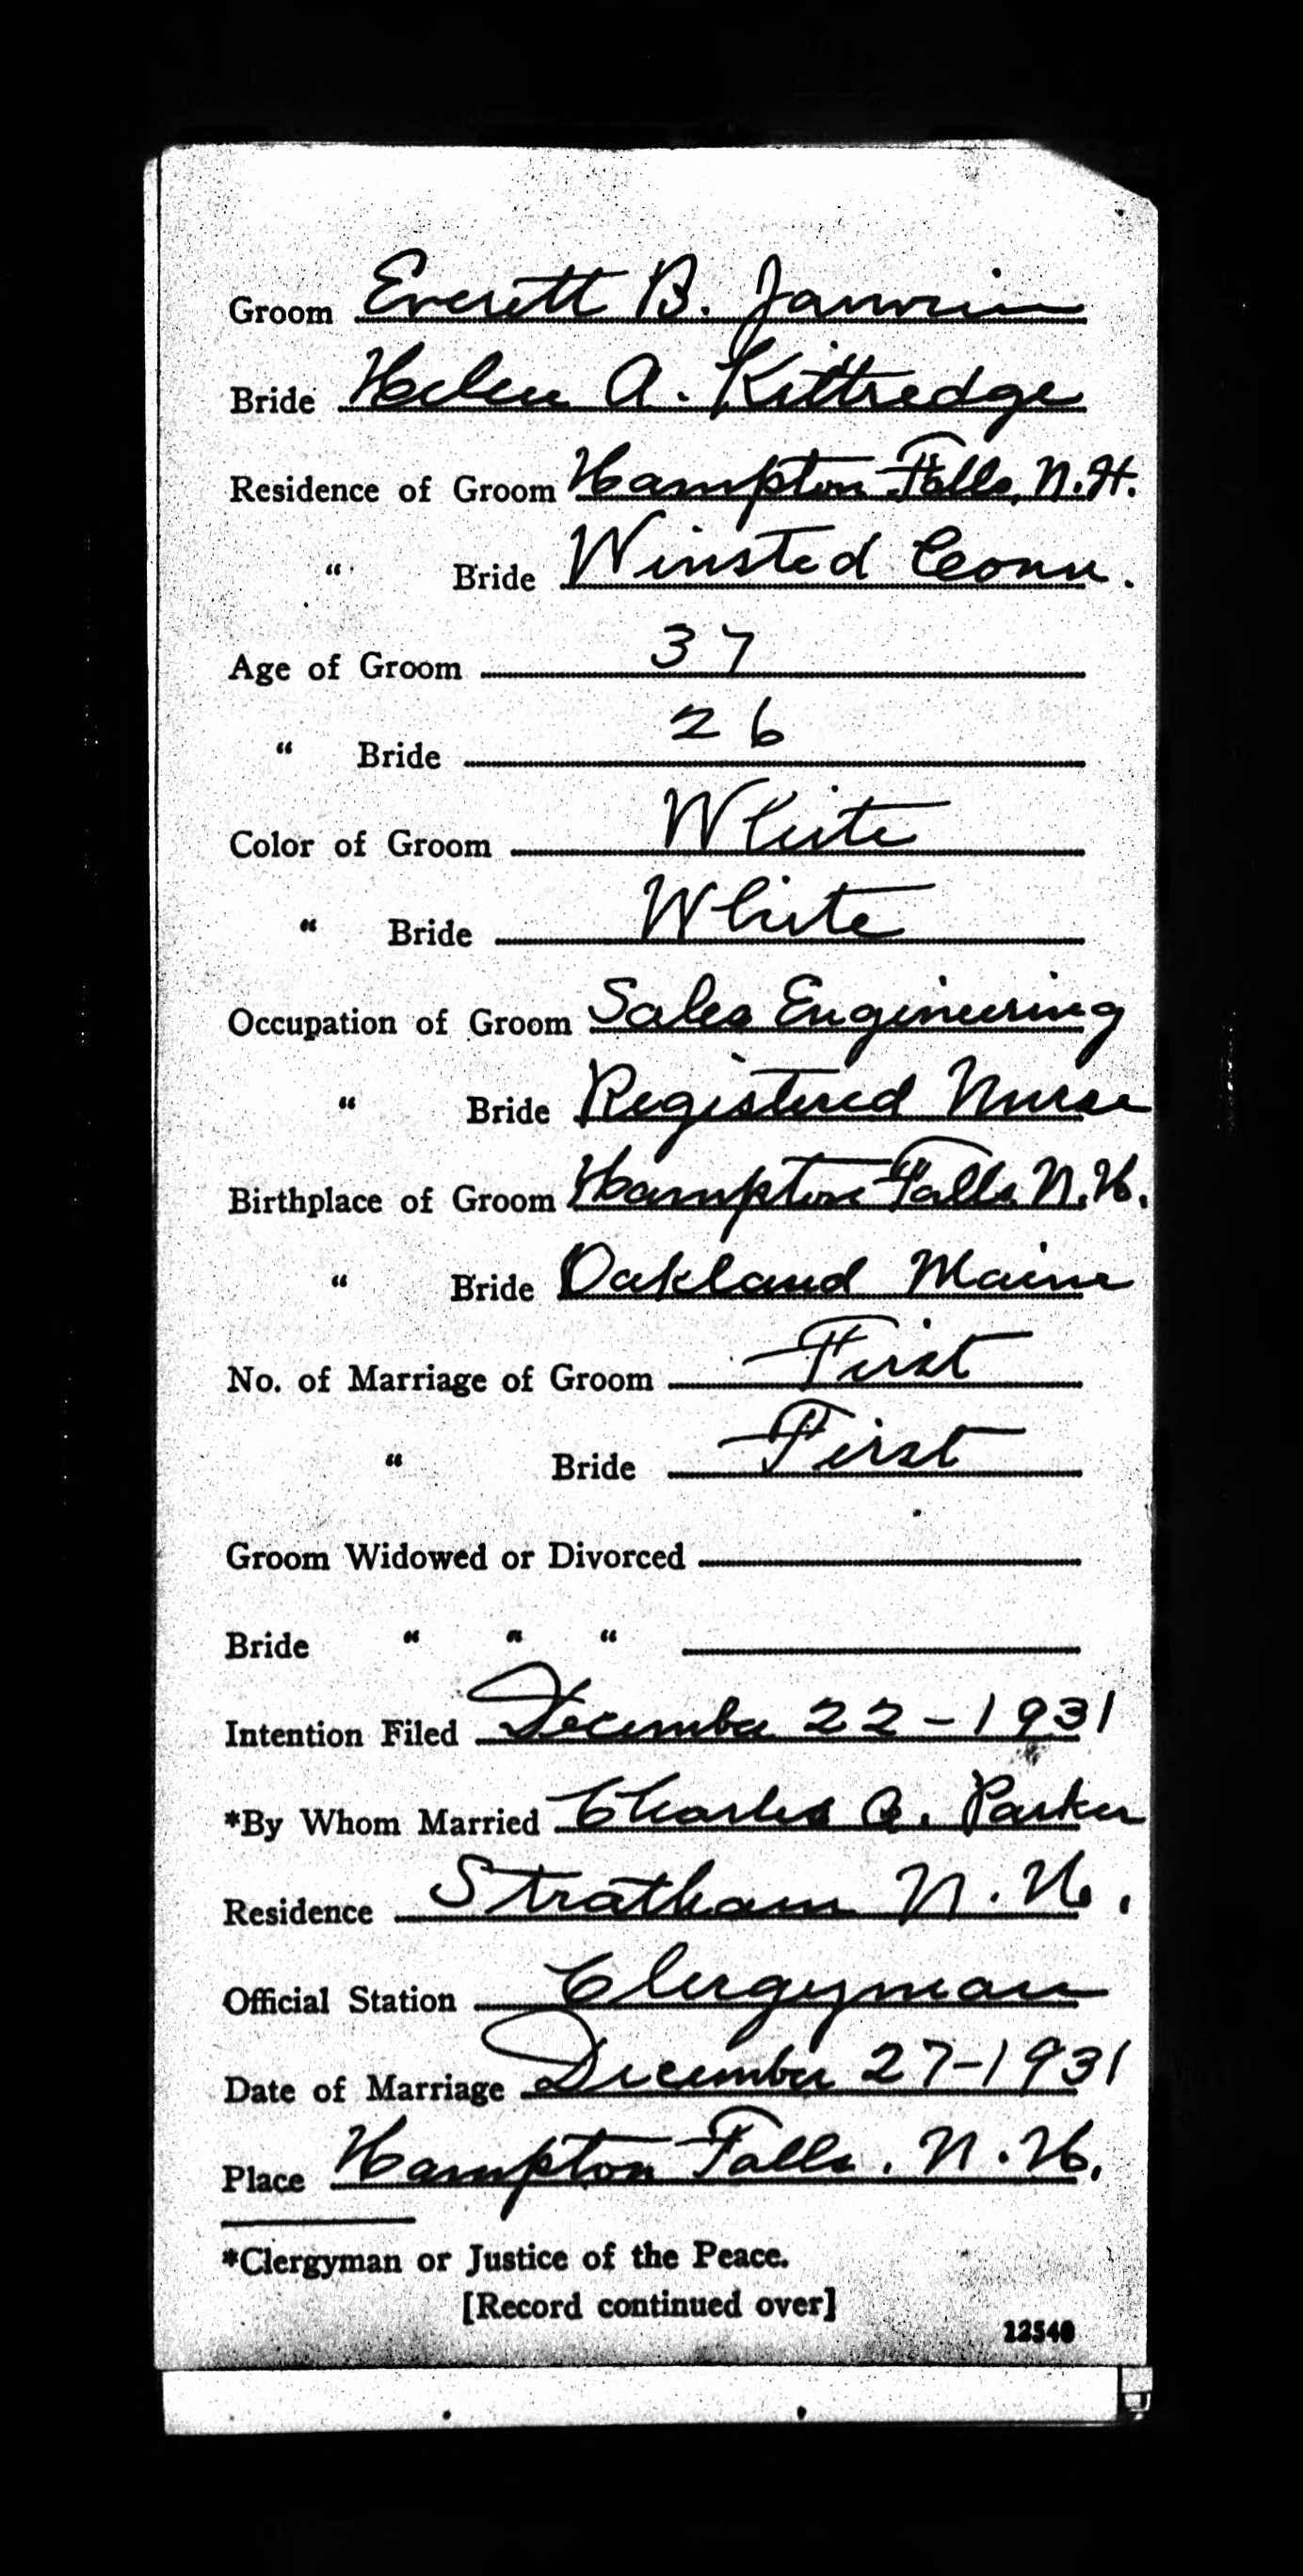 Groom Everett B. Janvrin
Bride Helen A. Kittredge
Residence of Groom Hampton Falls, N.H.
" Bride Winsted Conn.
Age of Groom 37
" Bride 26
Color of Groom White
" Bride White
Occupation of Groom Sales Engineering
" Bride Registered Nurse
Birthplace of Groom Hampton Falls N.H.
" Bride Oakland Maine
No. of Marriage of Groom First
" Bride First
Groom Widowed or Divorced
Bride " " "
Intention Filed December 22-1931
*By Whom Married Charles A. Parker
Residence Stratham N.H.
Official Station Clergyman
Date of Marriage December 27-1931
Place Hampton Falls, N.H.
*Clergyman or Justice of the Peace.
[Record continued over]
12540